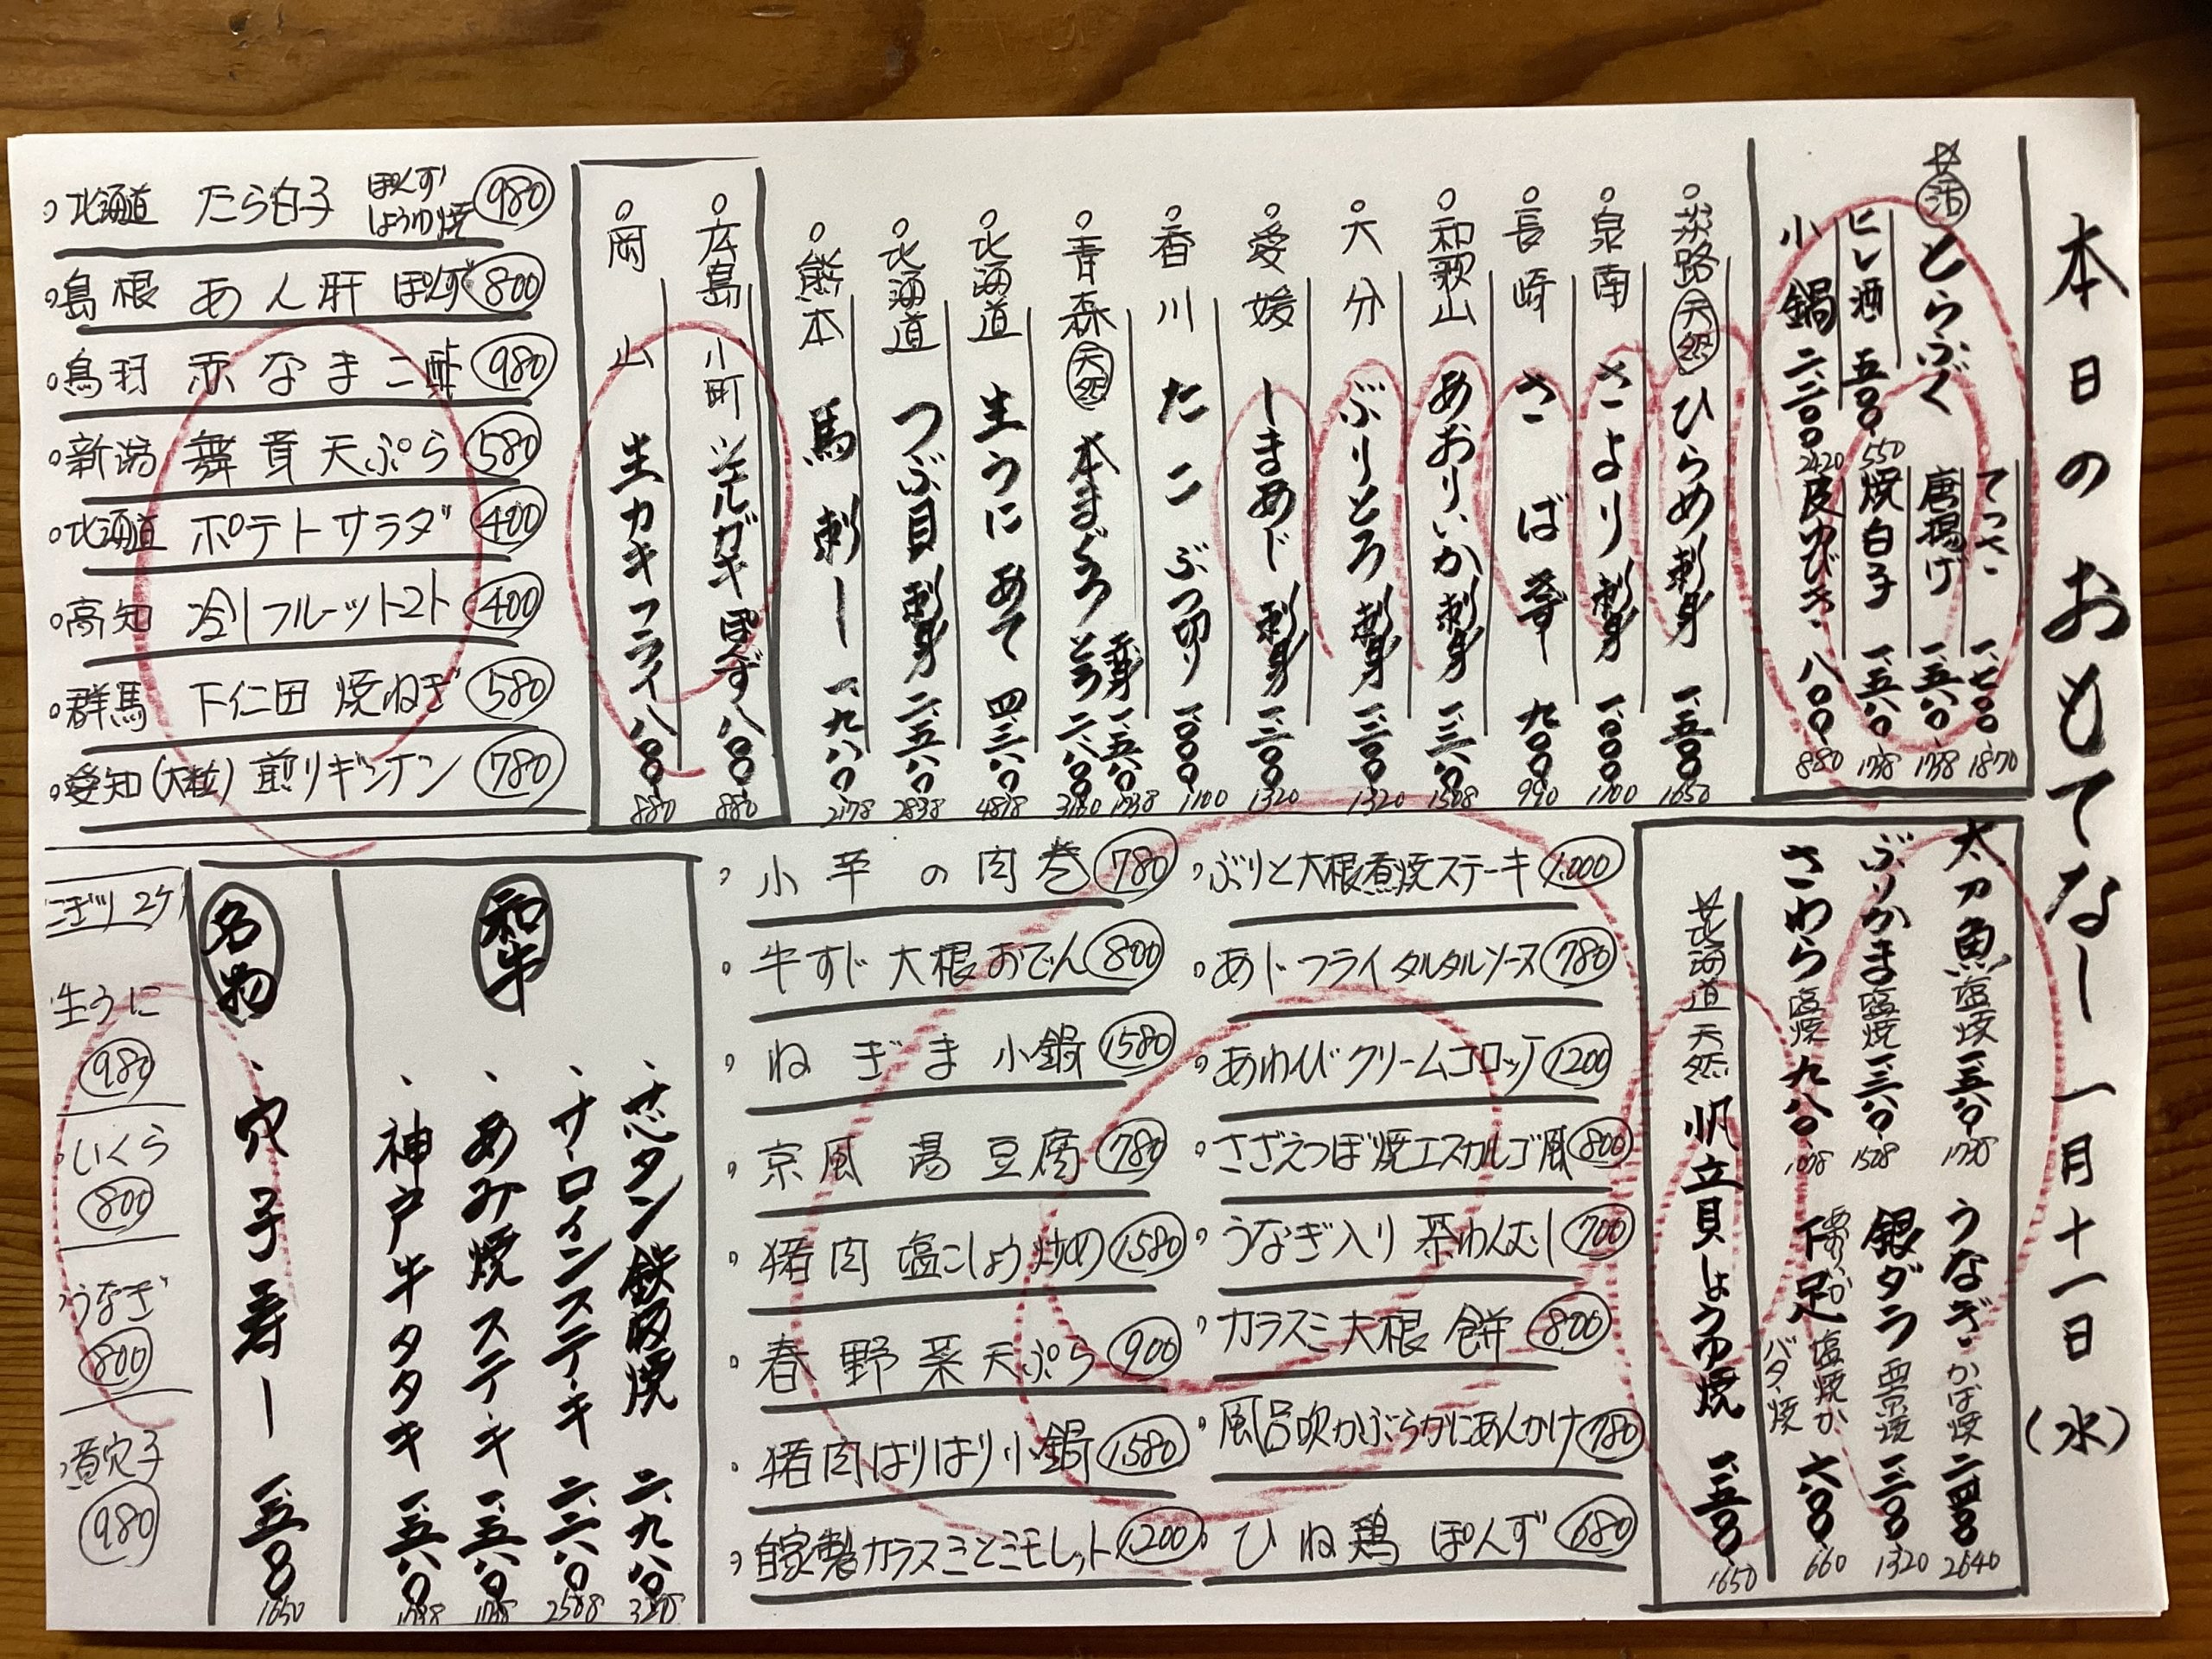 本日のおもてなし 一月十一日(水)
☆活とらふぐ
てっさ 一、七〇〇 1870
唐揚げ 一、五八〇 1738
ヒレ酒 五〇〇 550
焼白子 一、五八〇 1738
小鍋 二、二〇〇 2420
皮ゆびき 八〇〇 880
淡路 天然 ひらめ 刺身 一、五〇〇 1650
泉南 さより 刺身 一、〇〇〇 1100
長崎 さば 寿し 九〇〇 990
和歌山 あおりいか 刺身 一、三八〇 1508
大分 ぶりとろ 刺身 一、二〇〇 1320
愛媛 しまあじ 刺身 一、二〇〇 1320
香川 たこ ぶつ切り 一、〇〇〇 1100
青森 天然 本まぐろ 赤身 一、五八〇 1738
とろ 二、八〇〇
北海道 生うに あて 四、三八〇 4818
北海道 つぶ貝 刺身 二、五八〇 2838
熊本 馬刺し 一、九八〇 2178
広島 小町 ぽんず 八〇〇 880
岡山 生カキフライ 八〇〇 880
北海道 たら白子 ぽんず しょうゆ焼 980
島根 あん肝 ぽんず 800
鳥羽 赤なまこ酢 980
新潟 舞茸天ぷら 580
北海道 ポテトサラダ 400
高知 冷しフルーツトマト 400
群馬 下仁田 焼ねぎ 580
愛知(大粒) 煎りギンナン 780
太刀魚 塩焼 一、五八〇 1738
うなぎ かば焼 二、四〇〇 2640
ぶりかま 塩焼 一、三八〇 1508
銀ダラ 西京焼 一、二〇〇 1320
さわら 塩焼 九八〇 1078
あおりいか 下足 塩焼か バター焼 六〇〇 660
☆北海道 天然 帆立貝しょうゆ焼 一、五〇〇 1650
ぶりと大根煮焼ステーキ 1,000
あじフライタルタルソース 780
あわびクリームコロッケ 1200
さざえつぼ焼エスカルゴ風 800
うなぎ入り 茶わんむし 700
カラスミ大根 餅 800
風呂吹かぶらかにあんかけ 780
ひね鶏 ぽんず 680
小芋の肉巻 780
牛すじ大根おでん 800
ねぎま 小鍋 1580
京風 湯豆腐 780
猪肉 塩こしょう炒め 1580
春野菜天ぷら 900
猪肉はりはり小鍋 1580
自家製カラスミとミモレット 1200
和牛
芯タン鉄板焼 二、九八〇
サーロインステーキ 二、三八〇
あみ焼ステーキ 一、五八〇 1738
神戸牛タタキ 一、五八〇 1738
名物
穴子寿し 一、五〇〇 1650
にぎり2ケ
生うに 980
いくら 800
うなぎ 800
煮穴子 980